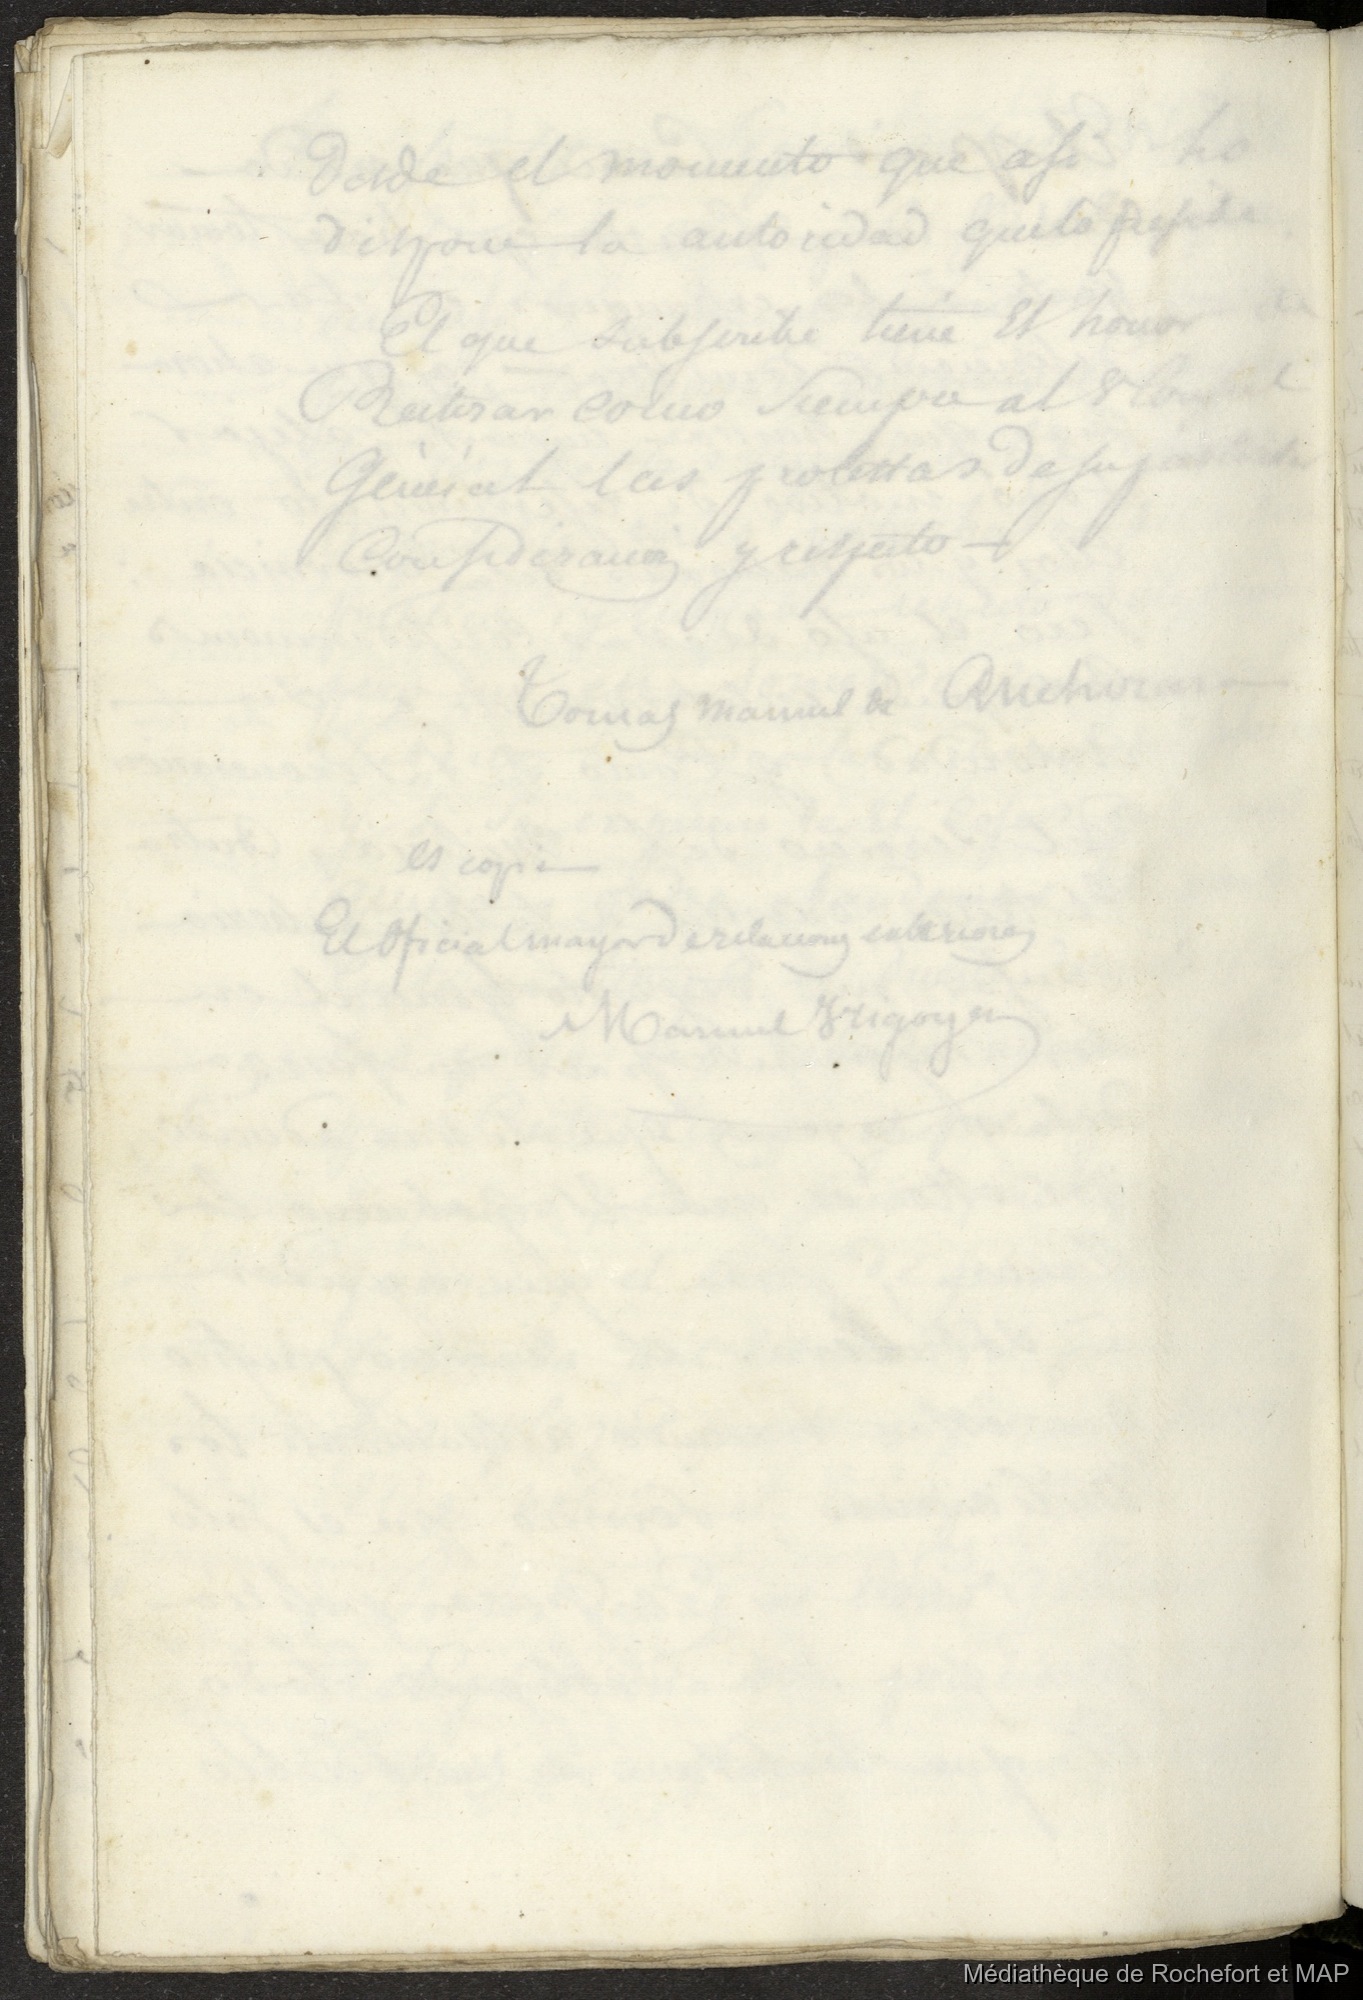 Desde el momento que asi lo
dispone la autoridad que lo preside
El que subscribe tiene El honor de
Reiterar como siempre al Sr Consul
Géneral las protestas de su
Consideracion y respeto
Tomas Manuel de Anchorena
Es copia
El Oficial mayor de relaciones exteriores
Manuel Yrigoyen
Médiathèque de Rochefort et MAP